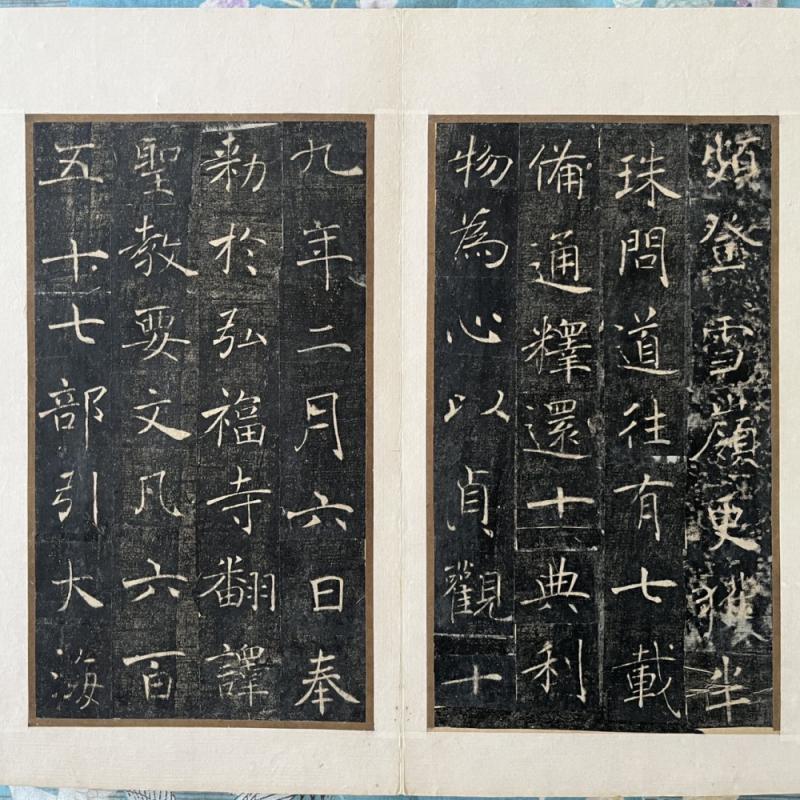 頻登雪嶺更獲半
珠問道往有七載
備通釋還十典利
物為心以貞觀十
九年二月六日奉
勅於弘福寺翻譯
聖教要文凡六百
五十七部引大海